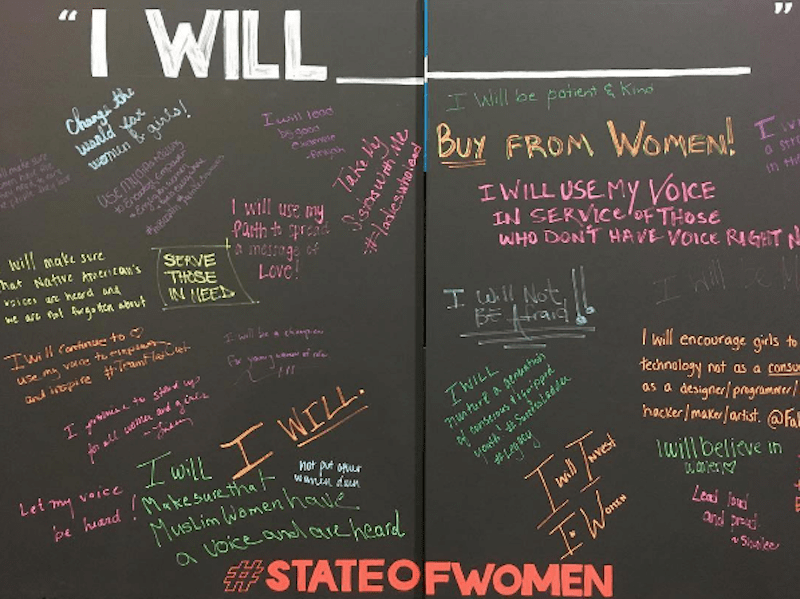 “I WILL ”
Change the
world for
women & girls!
I will lead
by good
Take My
Sisters With Me
#Ladieswholead
I will use my
faith to spread
a message of
Love!
will make sure
that Native American's
voices are heard and
we are not forgotten about
SERVE
THOSE
IN NEED
I will continue to ♡
use my voice to empower
and inspire
I will be a champion
For young women of color
I promise to stand up
for all women and girls
I WILL.
Let my voice
be heard!
I will
Make sure that
Muslim Women have
a voice and are heard
not put other
women down
I Will be patient & Kind
BUY FROM WOMEN!
I WILL USE MY VOICE
IN SERVICE OF THOSE
WHO DON'T HAVE VOICE RIGHT
I Will Not
BE Afraid!!
I will be
I WILL
Nurture a generation
of conscious & equipped
youth!
#Legacy
I will encourage girls to
technology not as a
as a designer/programmer/
hacker/maker/artist.
I will Invest
In WOMEN
I will believe in
women♡
Lead loud
and proud
#STATEOFWOMEN